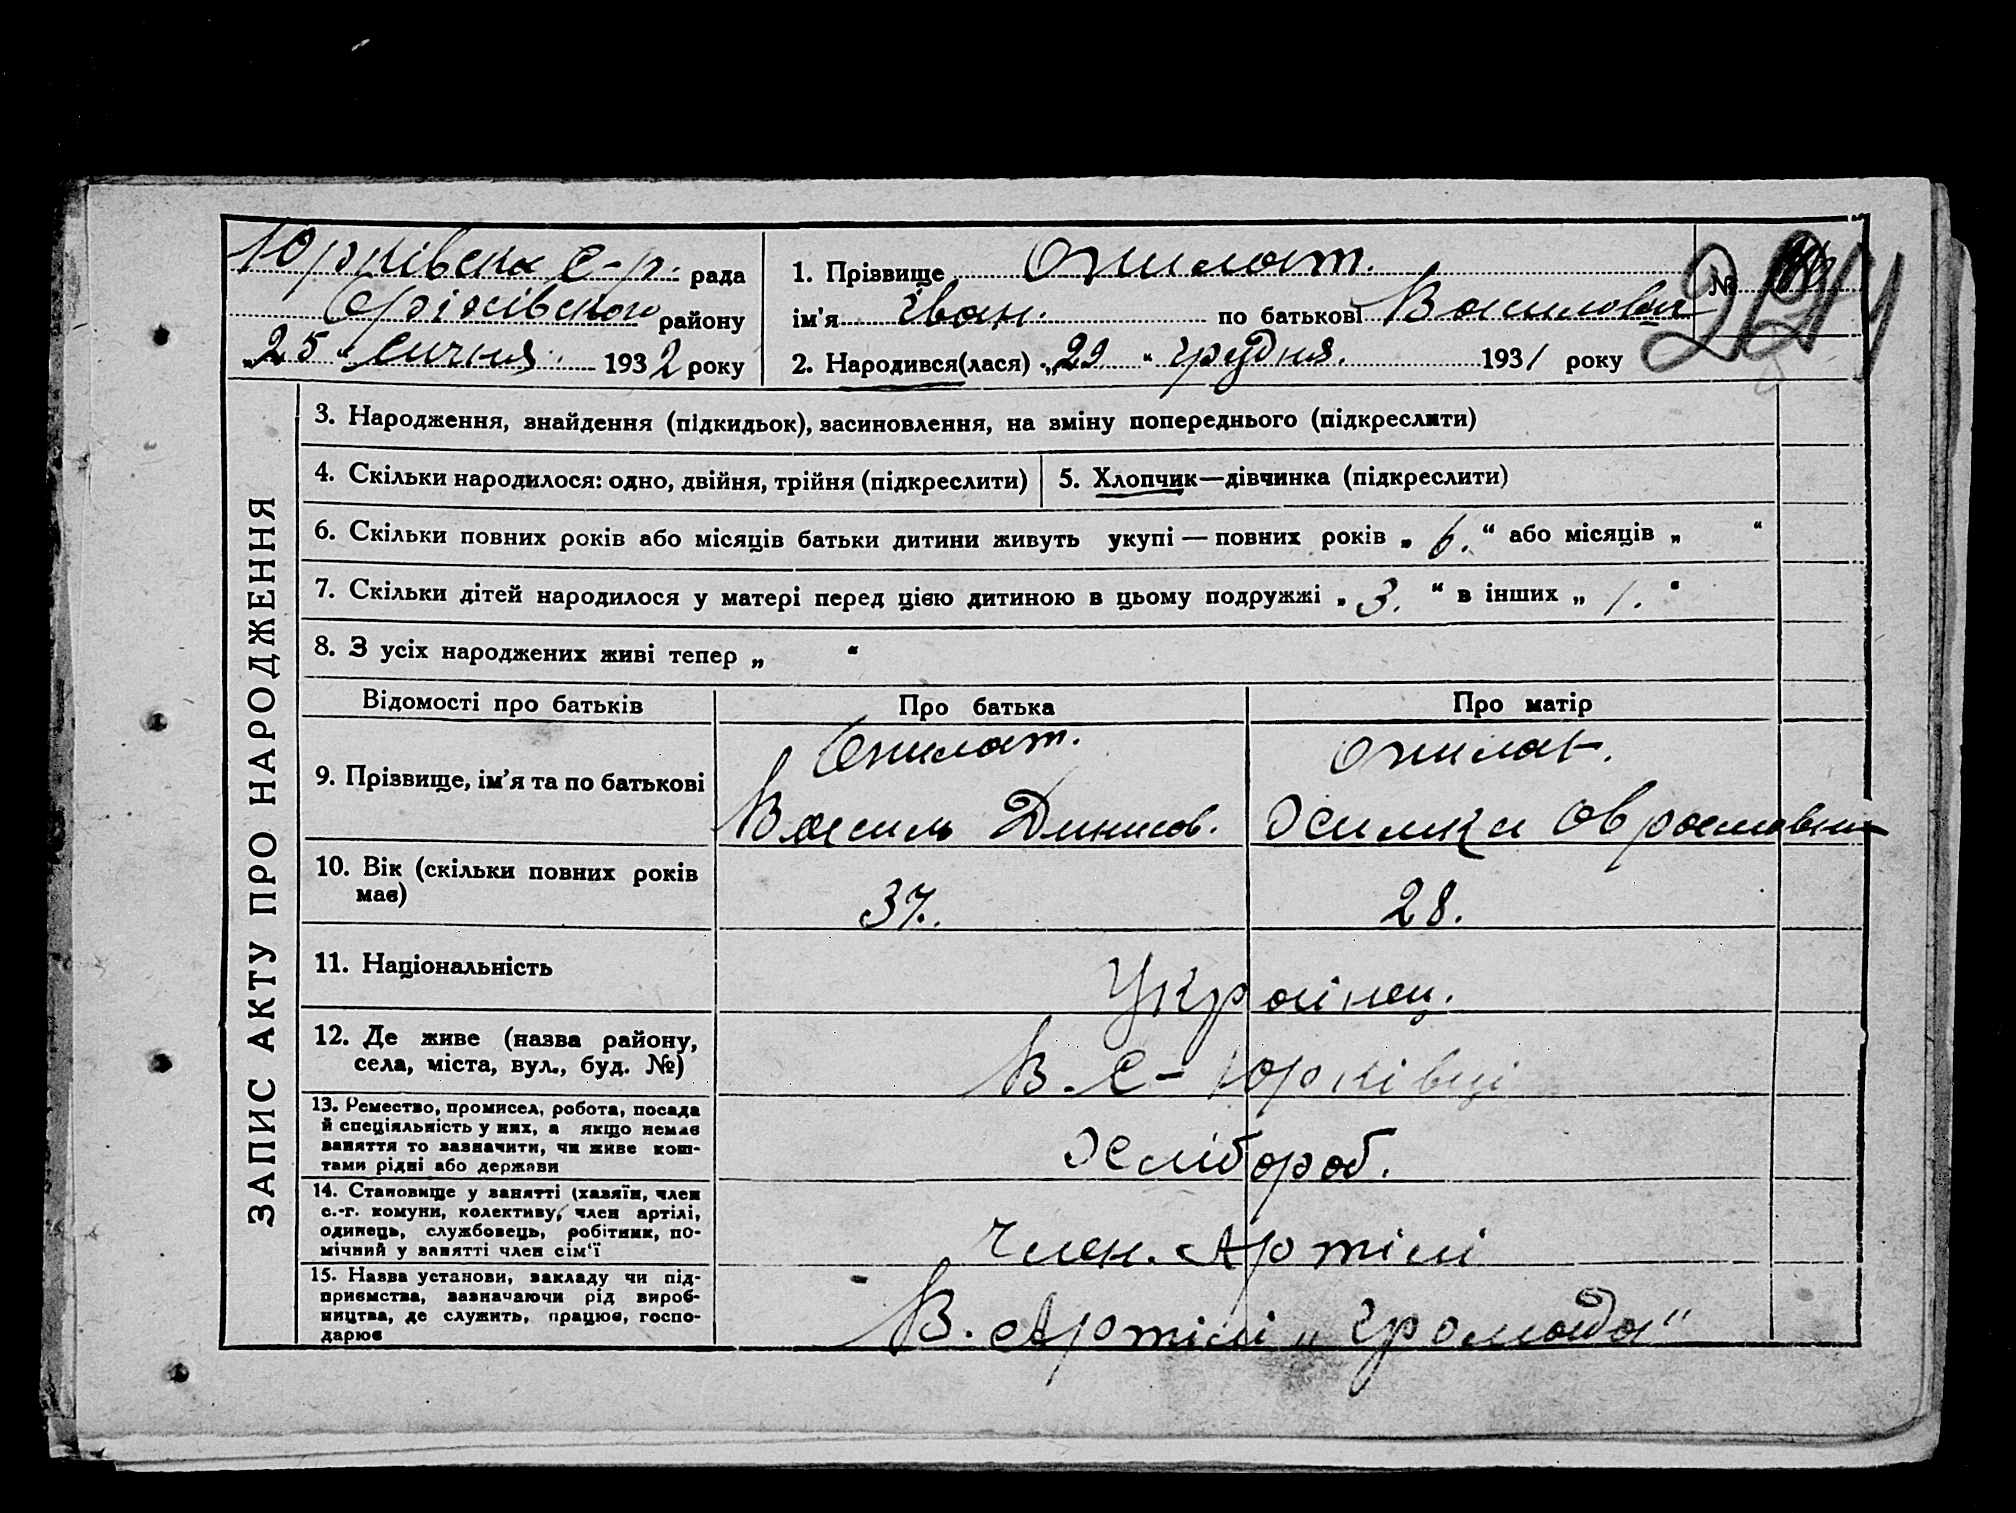 Юрківська С-р. рада
Оріхівського району
„25“ Січня 1932 року
1. Прізвище Опилат. №
ім'я Іван. по батькові Василович
2. Народився(лася) „22“ грудня. 1931 року
224
ЗАПИС АКТУ ПРО НАРОДЖЕННЯ
3. Народження, знайдення (підкидьок), засиновлення, на зміну попереднього (підкреслити)
4. Скільки народилося: одно, двійня, трійня (підкреслити) 5. Хлопчик—дівчинка (підкреслити)
6. Скільки повних років або місяців батьки дитини живуть укупі — повних років „6.“ або місяців „ “
7. Скільки дітей народилося у матері перед цією дитиною в цьому подружжі „3.“ в інших „1.“
8. З усіх народжених живі тепер „ “
Відомості про батьків Про батька Про матір
9. Прізвище, ім'я та по батькові
Опилат. Опилат.
Василь Динисов. Химка
10. Вік (скільки повних років
має)
37. 28.
11. Національність
Українец.
12. Де живе (назва району,
села, міста, вул., буд. №)
В. С- Юрківці
13. Ремество, промисел, робота, посада
й спеціяльність у них, а якщо немає
заняття то зазначити, чи живе кош-
тами рідні або держави
Хлібороб.
14. Становище у занятті (хазяїн, член
с.-г. комуни, колективу, член артілі,
одинець, службовець, робітник, по-
мічний у занятті член сім'ї
Член. Артілі
15. Назва установи, закладу чи під-
приємства, зазначаючи рід вироб-
ництва, де служить, працює, госпо-
дарює
В. Артілі „Громада"